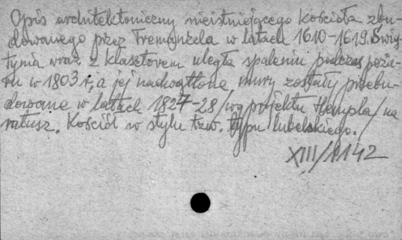 Opis architektoniczny nieistniejącego kościoła zbu-
dowanego przez Tremanzela w latach 1610-1619. Świą-
tynia wraz z klasztorem uległa spaleniu podczas poża-
ru w 1803 r., a jej nadwątlone mury zostały przebu-
dowane w latach 1827-28, wg projektu Hempla/na
ratusz. Kościół w stylu tzw. typu lubelskiego./
XIII/1142